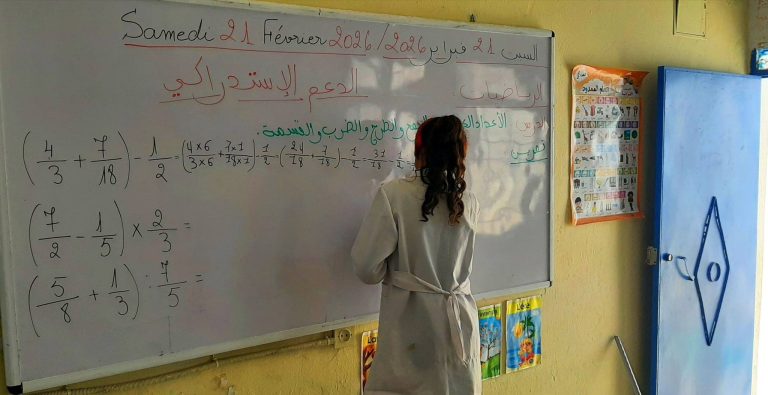 Samedi 21 Février 2026/2026 السبت 21 فبراير
الرياضيات.
الدعم الإستدراكي
والطرح والضرب والقسمة.
تمارين
(4/3 + 7/18) - 1/2 = (4×6/3×6 + 7×1/18×1) - 1/2 = (24/18 + 7/18) - 1/2 = 31/18 - 1/2
(7/2 - 1/5) × 2/3 =
(5/8 + 1/3) : 7/5 =